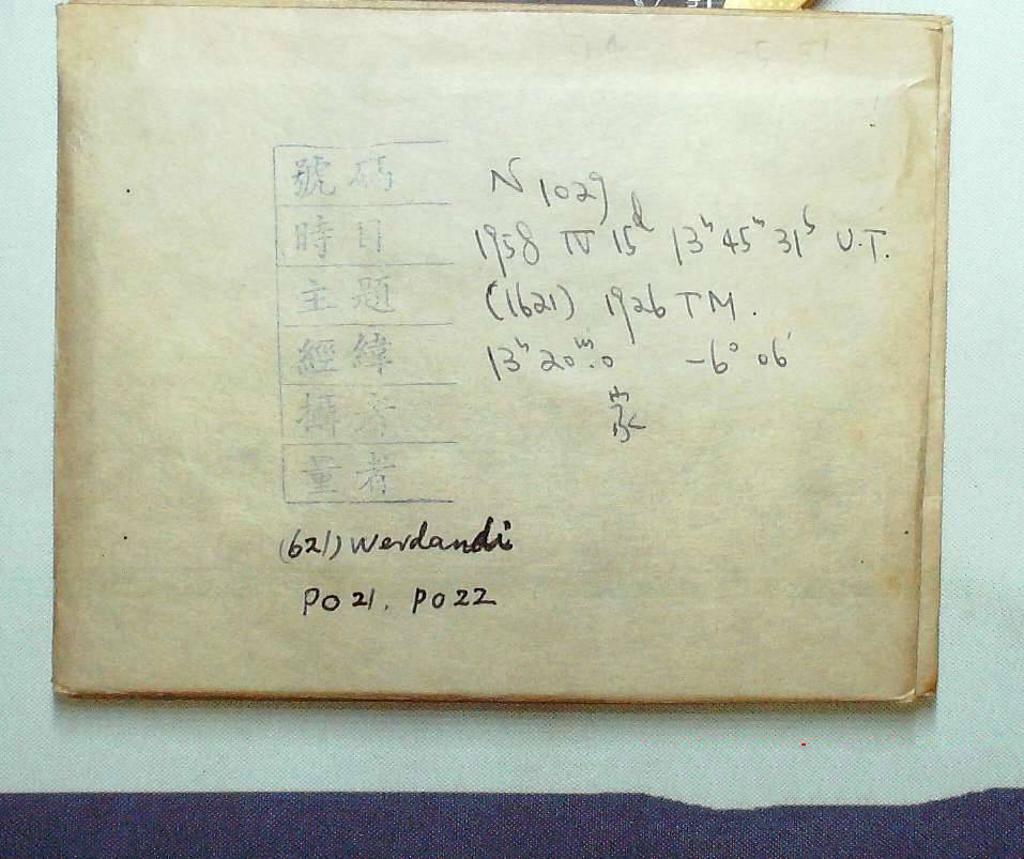 號碼 N 1029
時日 1958 IV 15d 13h 45m 31s U.T.
主題 (1621) 1926 TM.
經緯 13h 20m.0 -6° 06'
攝者
量者
(621) Werdandi
PO 21. PO 22